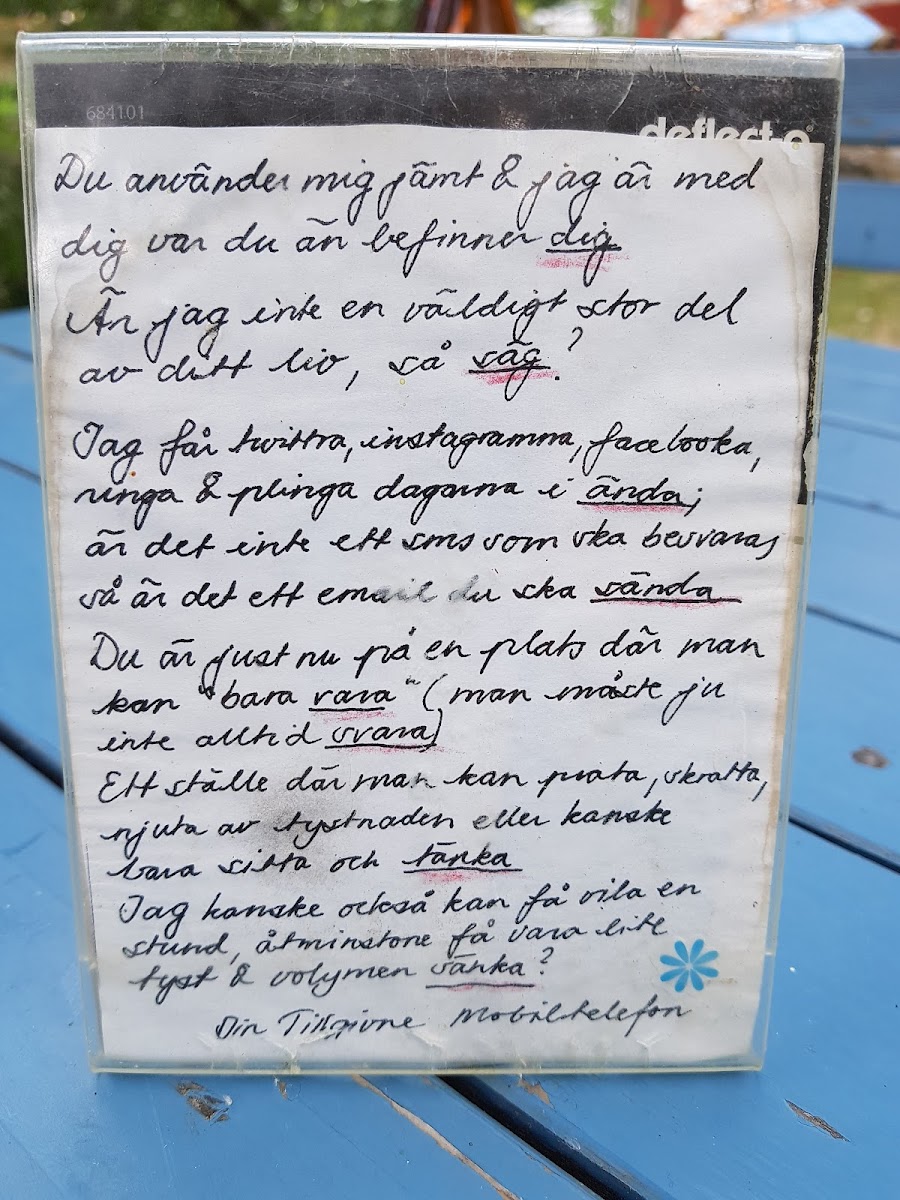 684101
deflect-o®
Du använder mig jämt & jag är med
dig var du än befinner dig
Är jag inte en väldigt stor del
av ditt liv, så säg?
Jag får twittra, instagramma, facebooka,
ringa & plinga dagarna i ända;
är det inte ett sms som ska besvaras
så är det ett email du ska sända
Du är just nu på en plats där man
kan "bara vara" (man måste ju
inte alltid svara)
Ett ställe där man kan prata, skratta,
njuta av tystnaden eller kanske
bara sitta och tänka
Jag kanske också kan få vila en
stund, åtminstone få vara lite
tyst & volymen sänka?
Din Tillgivne Mobiltelefon